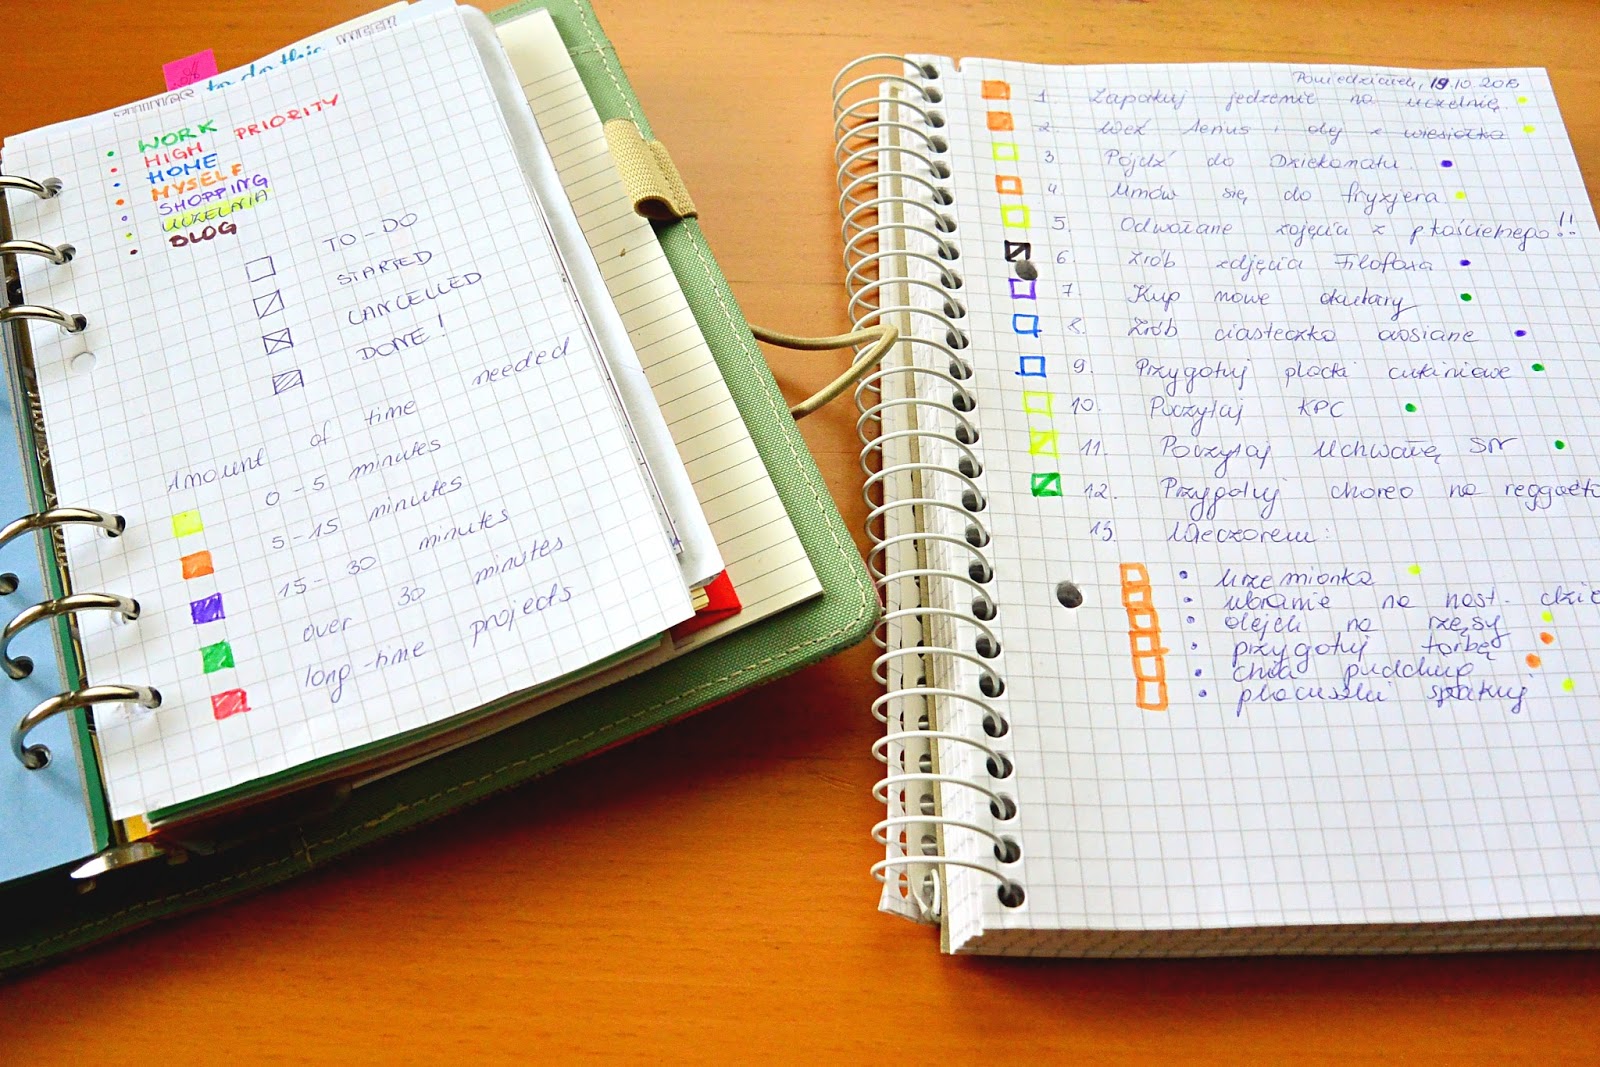 to do this
WORK
HIGH PRIORITY
HOME
MYSELF
SHOPPING
UCZELNIA
BLOG
TO-DO
STARTED
CANCELLED
DONE!
Amount of time needed
0-5 minutes
5-15 minutes
15-30 minutes
over 30 minutes
long-time projects
Poniedziałek, 19.10.2015
1. Zapakuj jedzenie na uczelnię.
2. Weź Venus i olej z wiesiołka
3. Pójdź do Dziekanatu.
4. Umów się do fryzjera
5. Odwołane zajęcia z
6. Zrób zdjęcia Filofaxa
7. Kup nowe okulary
8. Zrób ciasteczka owsiane
9. Przygotuj placki cukiniowe
10. Poczytaj KPC
11. Poczytaj Uchwałę SN
12. Przygotuj choreo na
13. Wieczorem:
ubranie na nast.
olejek na rzęsy
przygotuj torbę
chia pudding
placuszki spakuj